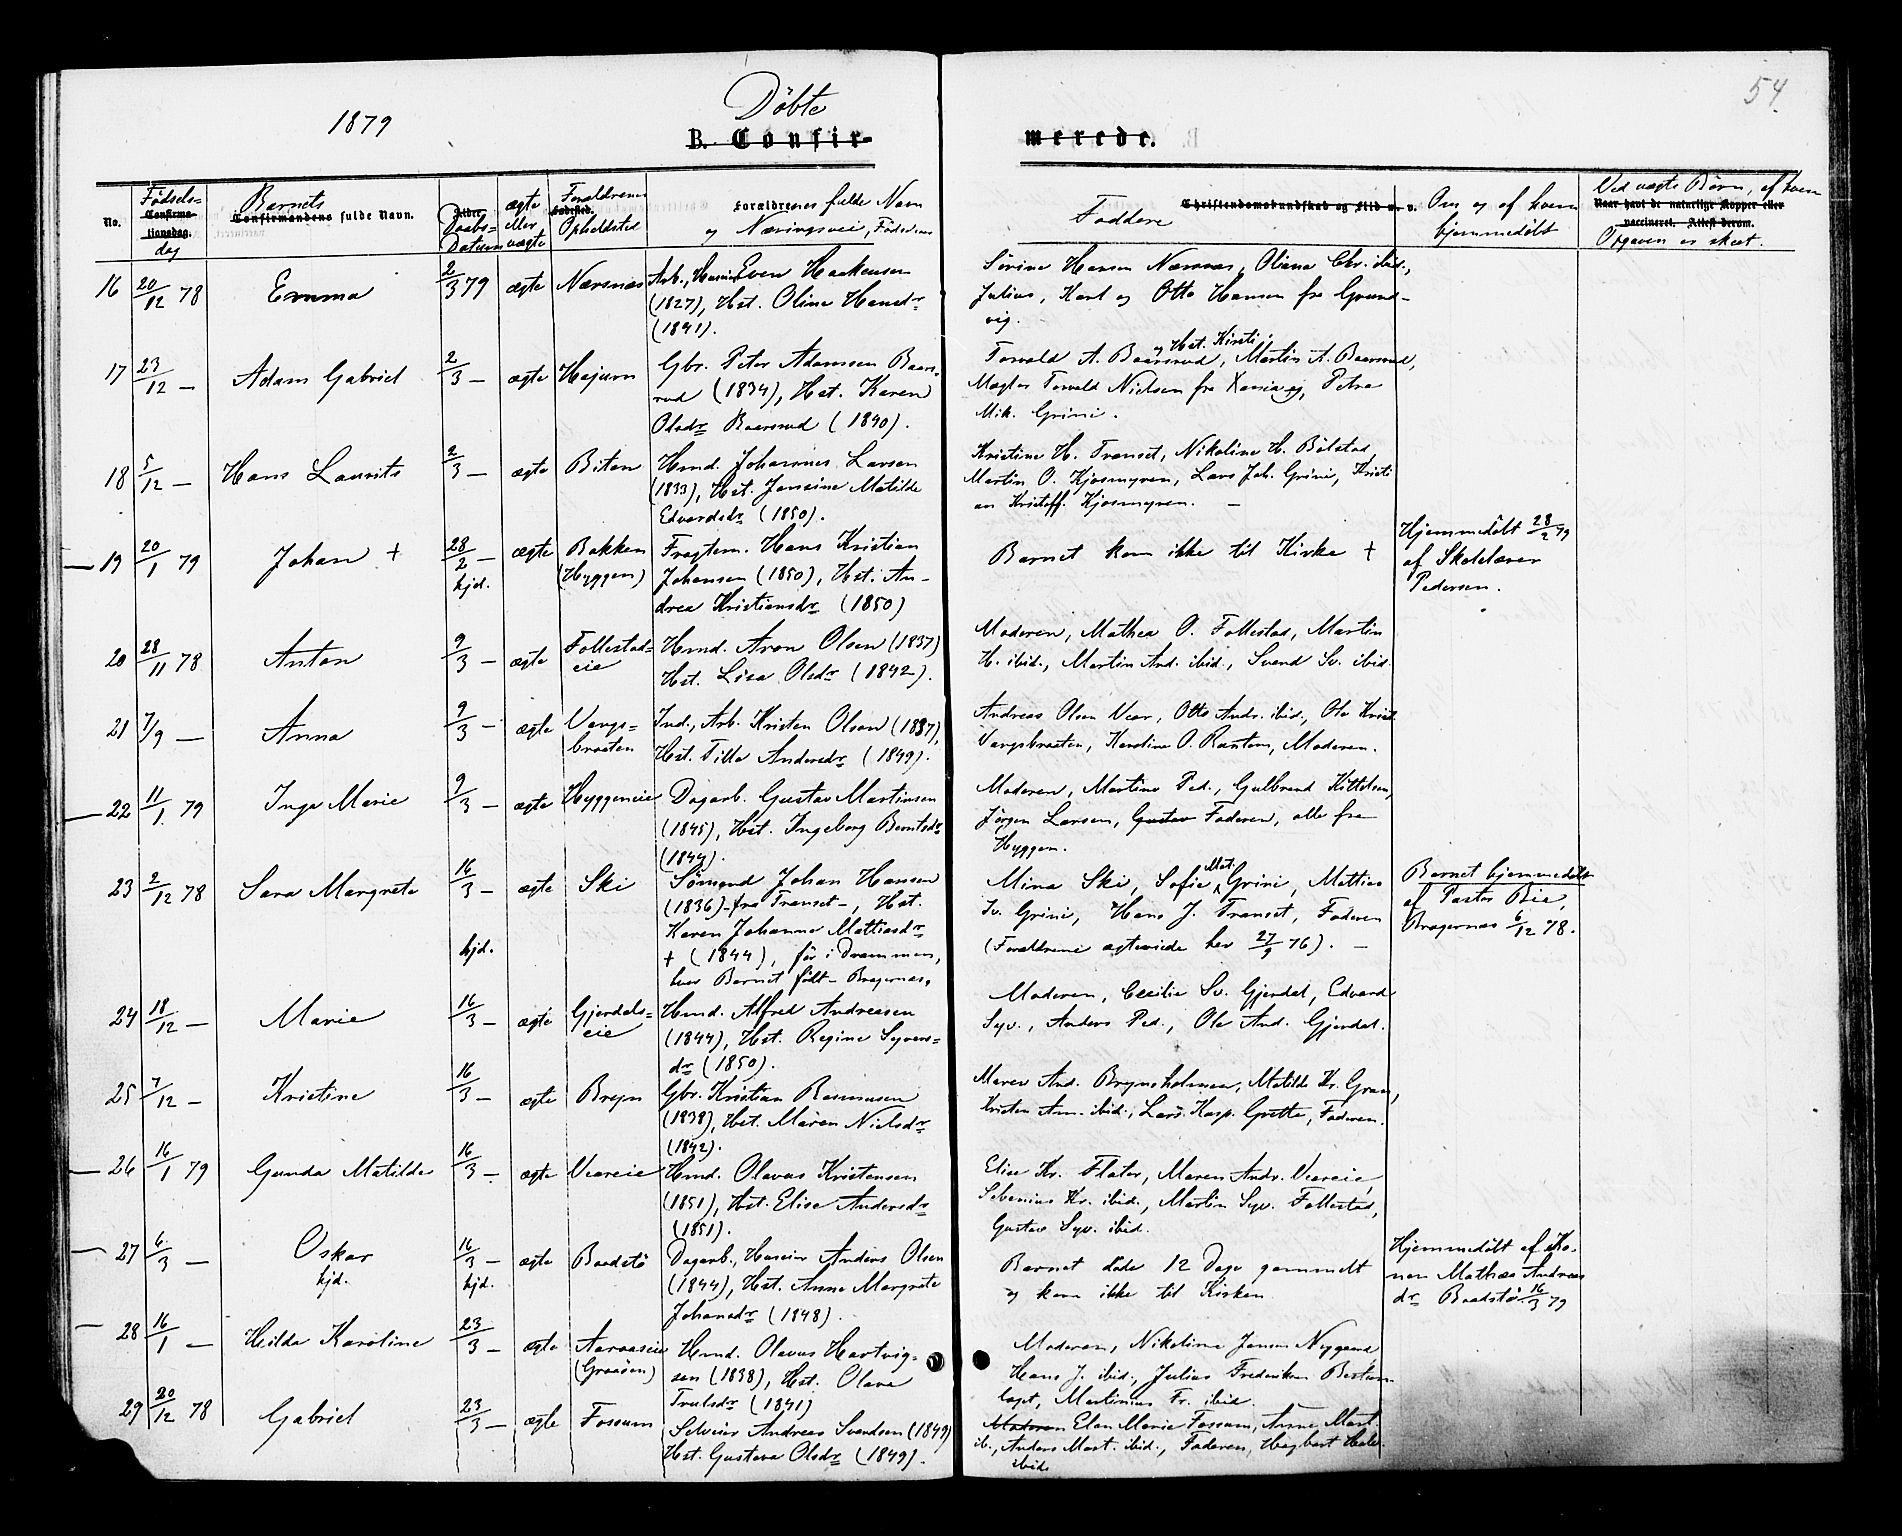 54
1879
Döbte
B. Confirmerede.
No.
Fødsels-
Confirma-
tionsdag.
dag
Barnets
Confirmandens fulde Navn.
Alder
Daabs-
Datum
ægte
eller
uægte
Forældrenes
Fødested.
Opholdsted
Forældrenes fulde Navn
og Næringsvei, Födselsaar
Christendomskundskab og Flid m. v.
Faddere
Om og af hvem
hjemmedöbt
Ved uægte Börn, af hvem
Naar havt de naturlige Kopper eller
vaccineret. Attest derom.
Opgaven er skeet.
16 20/12 78 Emma 2/3 79 ægte Nærsnæs Arb., Huseier Even Haakensen
(1827), Hst. Oline Hansdr
(1841).
Sörine Hansen Nærsnæs, Oliana Chr. ibid.,
Julius, Karl og Otto Hansen fra Grund-
vig.
17 23/12 — Adam Gabriel 2/3 — ægte Højum Gbr. Peter Adamsen Baars-
rud (1834), Hst. Karen
Olsdr Baarsrud (1840).
og Hst. Kirsti,
Torvald A. Baarsrud, Martin A. Baarsrud,
Magter Torvald Nielsen fra Xania, og Petra
Mik. Grini.
18 5/12 — Hans Laurits 2/3 — ægte Biten Hmd. Johannes Larsen
(1833), Hst. Jensine Matilde
Edvardsdr (1850).
Kristine H. Transet, Nikoline H. Bölstad,
Martin O. Kjosmyren, Lars Joh. Grini, Kristi
an Kristoff. Kjosmyren. —
19 20/1 79 Johan + 28/2 — hjd. ægte Bakken
(Hyggen)
Fragtem. Hans Kristian
Johansen (1850), Hst. An-
drea Kristiansdr (1850)
Barnet kom ikke til Kirke +
Hjemmedöbt 28/2 79
af Skolelærer
Pedersen.
20 28/11 78 Anton 9/3 — ægte Follestad-
eie
Hmd. Aron Olsen (1837)
Hst. Lisa Olsdr (1842).
Moderen, Mathea O. Follestad, Martin
H. ibid., Martin And. ibid., Svend Sv. ibid.
21 7/9 — Anna 9/3 — ægte Vangs-
braaten
Ind., Arb. Kristen Olsen (1837),
Hst. Tilla Andersdr (1849).
Andreas Olsen Vear, Otto Andr. ibid., Ole Krist.
Vangsbraaten, Karoline O. Rantom, Moderen.
22 11/1 79 Inga Marie 9/3 — ægte Hyggeneie Dagarb. Gustav Martinsen
(1845), Hst. Ingeborg Berntsdr
(1844).
Moderen, Martine Ped., Gulbrand Kittelsen,
Jörgen Larsen, Gustav Faderen, alle fra
Hyggen.
23 2/12 78 Sara Margrete 16/3 — hjd. ægte Ski Sömand Johan Hansen
(1836) - fra Transet -, Hst.
Karen Johanne Mattiasdr
+ (1844), för i Drammen,
hvor Barnet födt - Bragernæs.
Mat.
Mina Ski, Sofie Grini, Mattias
Sv. Grini, Hans J. Transet, Faderen
(Forældrene ægteviede her 27/9 76). —
Barnet hjemmedöbt
af Pastor Bie,
Bragernæs 6/12 78.
24 18/12 — Marie 16/3 — ægte Gjerdals-
eie
Hmd. Alfred Andreasen
(1844), Hst. Regine Syvers-
dr (1850).
Moderen, Cecilie Sv. Gjerdal, Edvard
Syv., Anders Ped., Ole And. Gjerdal.
25 7/12 — Kristine 16/3 — ægte Bryn Gbr. Kristian Rasmusen
(1838), Hst. Maren Nielsdr
(1842).
Maren And. Brynsholmen, Matilde Kr. Gran,
Kristen Am. ibid., Lars Kasp. Grette, Faderen.
26 16/1 79 Gunda Matilde 16/3 — ægte Veareie Hmd. Olavus Kristensen
(1851), Hst. Elise Andersdr
(1851).
Elise Kr. Flater, Maren Andr. Veareie,
Sebenius Kr. ibid., Martin Syv. Follestad,
Gustav Syv. ibid.
27 6/3 — Oskar
hjd.
16/3 — hjd. ægte Baadstö Dagarb., Huseier Anders Olsen
(1844), Hst. Anne Margrete
Johansdr (1848).
Barnet döde 12 Dage gammelt
og kom ikke til Kirken
Hjemmedöbt af Ko-
nen Mathea Andreas
dr Baadstö 16/3 79
28 16/1 — Hilda Karoline 23/3 — ægte Aaraaseie
(Graaöen)
Hmd. Olavus Hartvig-
sen (1838), Hst. Olava
Trulsdr (1841)
Moderen, Nikoline Jensen Nygaard,
Hans J. ibid., Julius Frederiksen
Martinius Fr. ibid.
29 20/12 78 Gabriel 23/3 — ægte Fossum Selveier Andreas Svendsen (1849)
Hst. Gustava Olsdr (1849).
Moderen Elen Marie Fossum, Anne Mart.
ib., Anders Mart. ibid., Faderen, Hagbart
ibid.